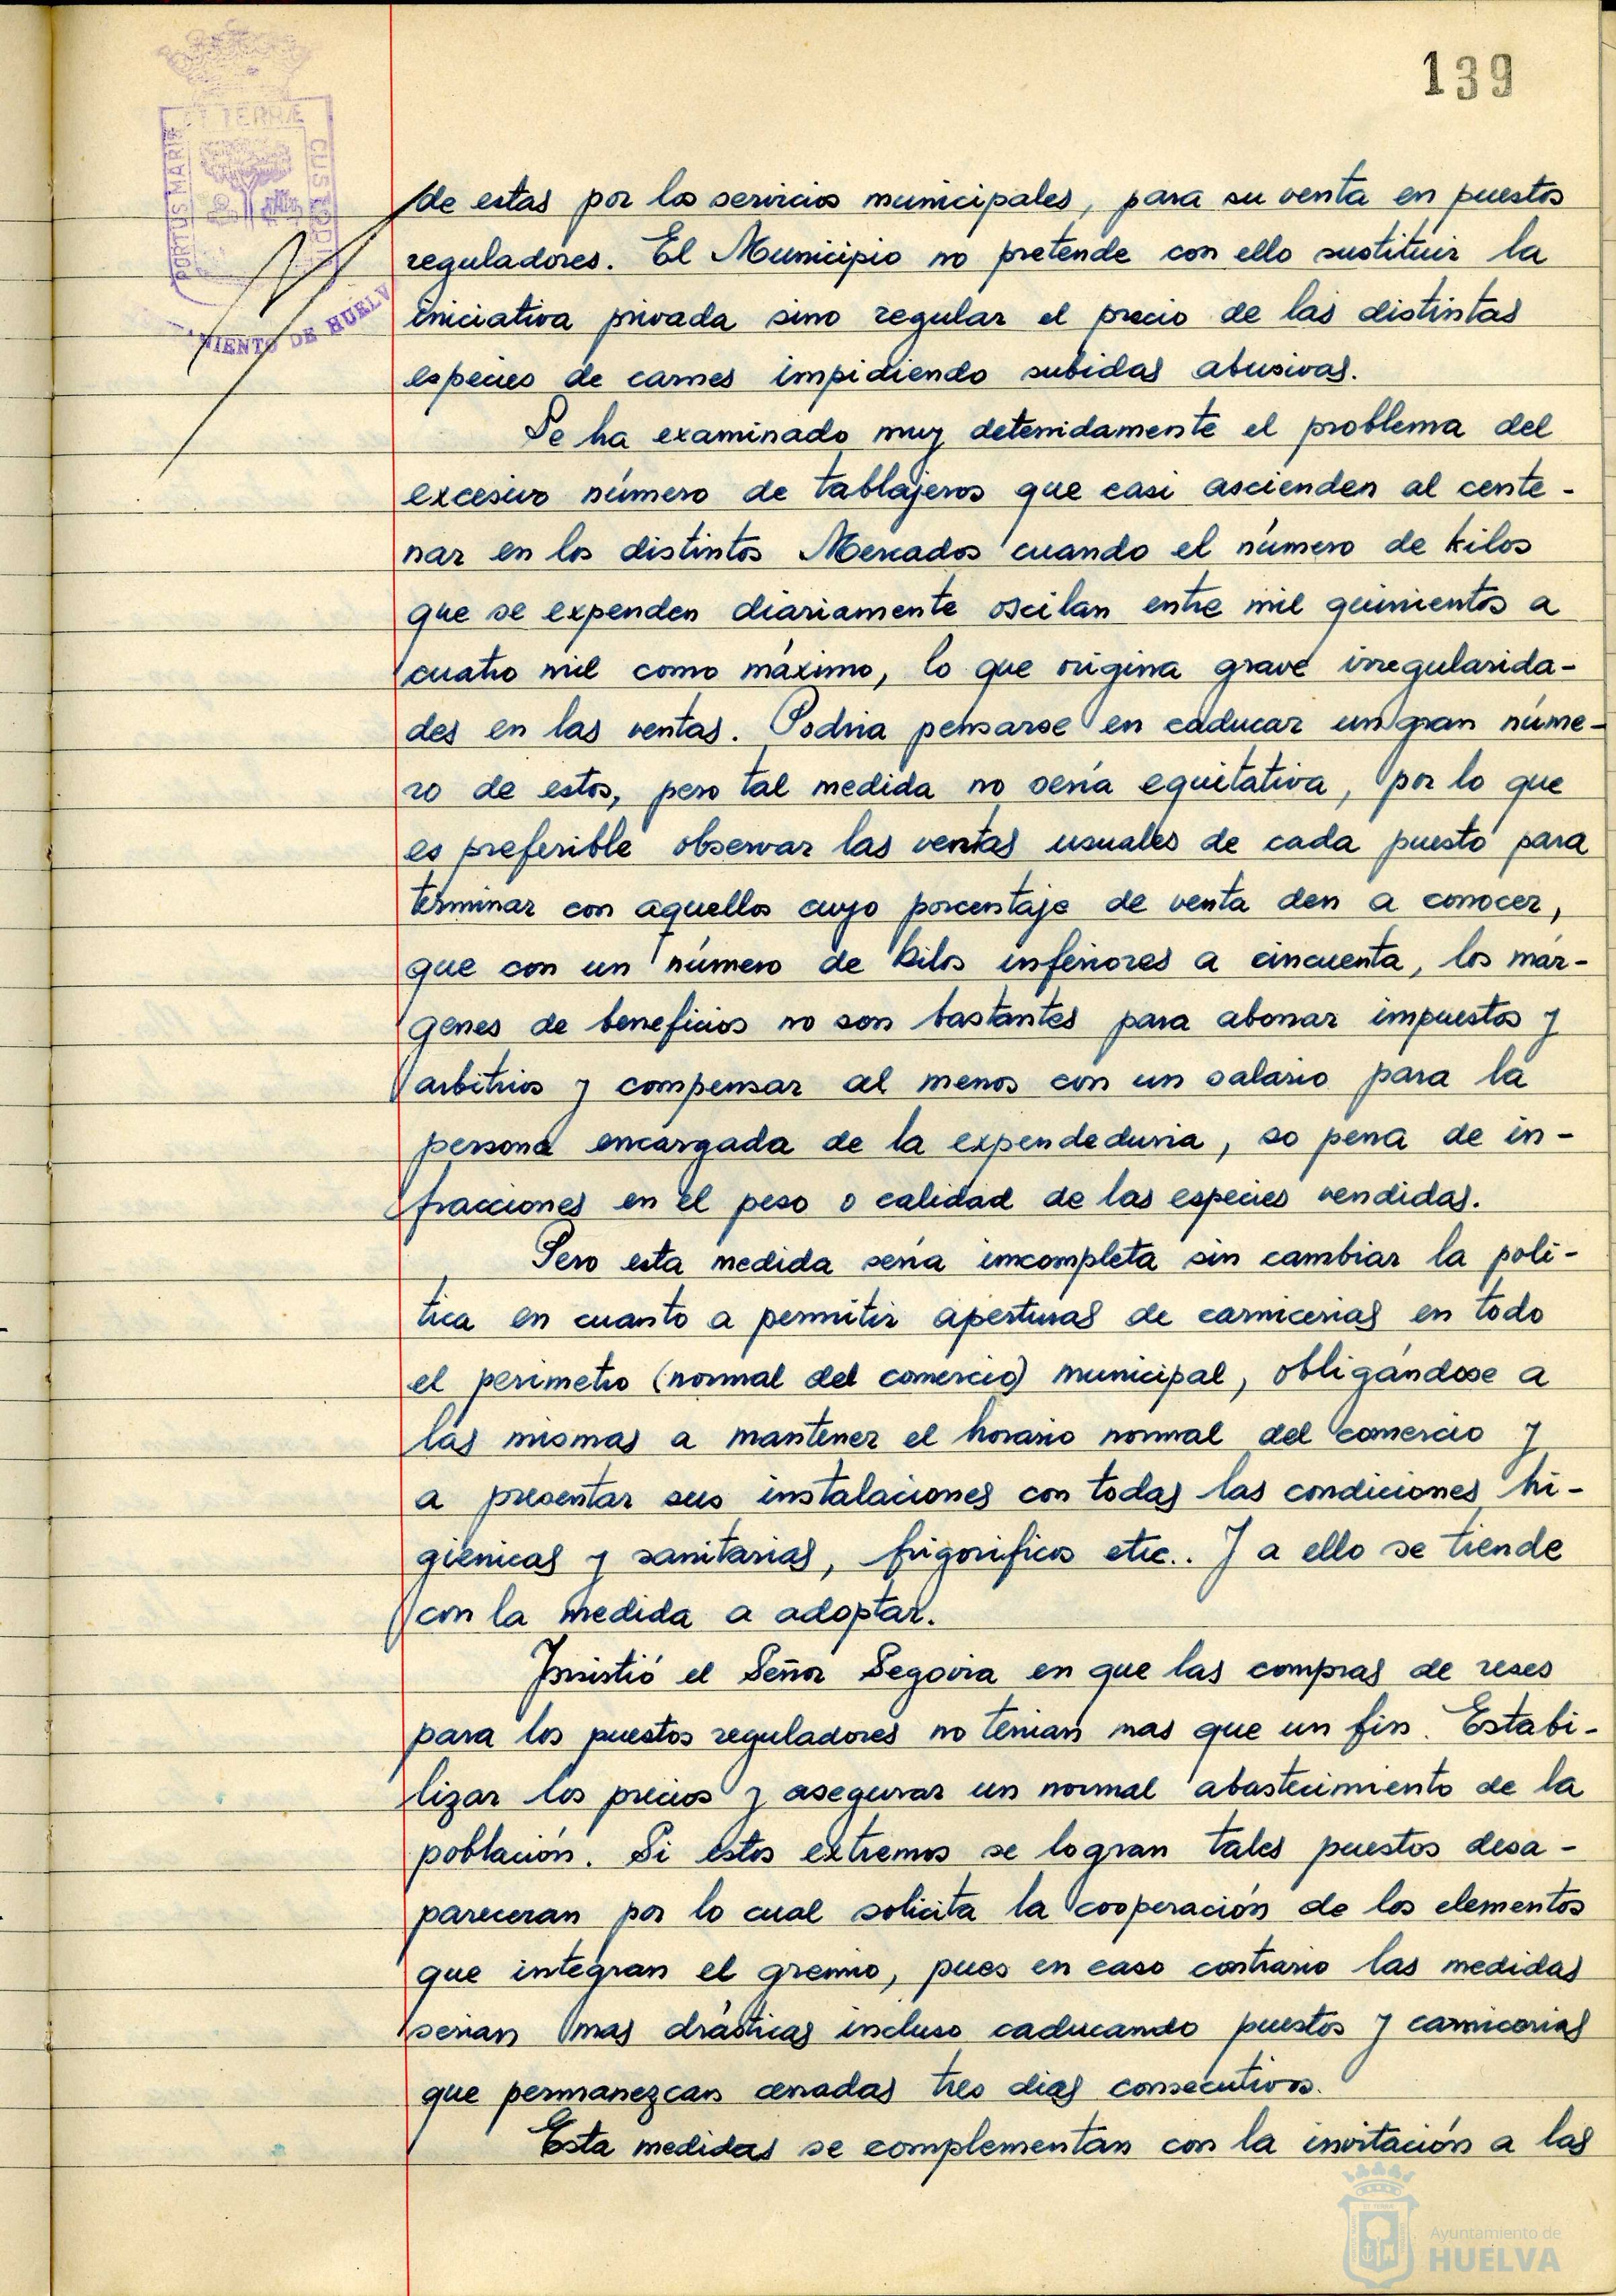 139
PORTUS MARIS ET TERRÆ CUSTODIA
MIENTO DE HUELV
de estas por los servicios municipales, para su venta en puestos
reguladores. El Municipio no pretende con ello sustituir la
iniciativa privada sino regular el precio de las distintas
especies de carnes impidiendo subidas abusivas.
Se ha examinado muy detenidamente el problema del
excesivo número de tablajeros que casi ascienden al cente-
nar en los distintos Mercados cuando el número de kilos
que se expenden diariamente oscilan entre mil quinientos a
cuatro mil como máximo, lo que origina grave irregularida-
des en las ventas. Podria pensarse en caducar un gran núme-
ro de estos, pero tal medida no sería equitativa, por lo que
es preferible observar las ventas usuales de cada puesto para
terminar con aquellos cuyo porcentaje de venta den a conocer,
que con un número de kilos inferiores a cincuenta, los már-
genes de beneficios no son bastantes para abonar impuestos y
arbitrios y compensar al menos con un salario para la
persona encargada de la expendeduria, so pena de in-
fracciones en el peso o calidad de las especies vendidas.
Pero esta medida sería imcompleta sin cambiar la poli-
tica en cuanto a permitir aperturas de carnicerias en todo
el perimetro (normal del comercio) municipal, obligándose a
las mismas a mantener el horario normal del comercio y
a presentar sus instalaciones con todas las condiciones hi-
gienicas y sanitarias, frigorificos etc.. Y a ello se tiende
con la medida a adoptar.
Insistió el Señor Segovia en que las compras de reses
para los puestos reguladores no tenian mas que un fin. Estabi-
lizar los precios y asegurar un normal abastecimiento de la
población. Si estos extremos se logran tales puestos desa-
pareceran por lo cual solicita la cooperación de los elementos
que integran el gremio, pues en caso contrario las medidas
serian mas drásticas incluso caducando puestos y carnicerias
que permanezcan cerradas tres dias consecutivos.
Esta medidas se complementan con la invitación a las
Ayuntamiento de
HUELVA